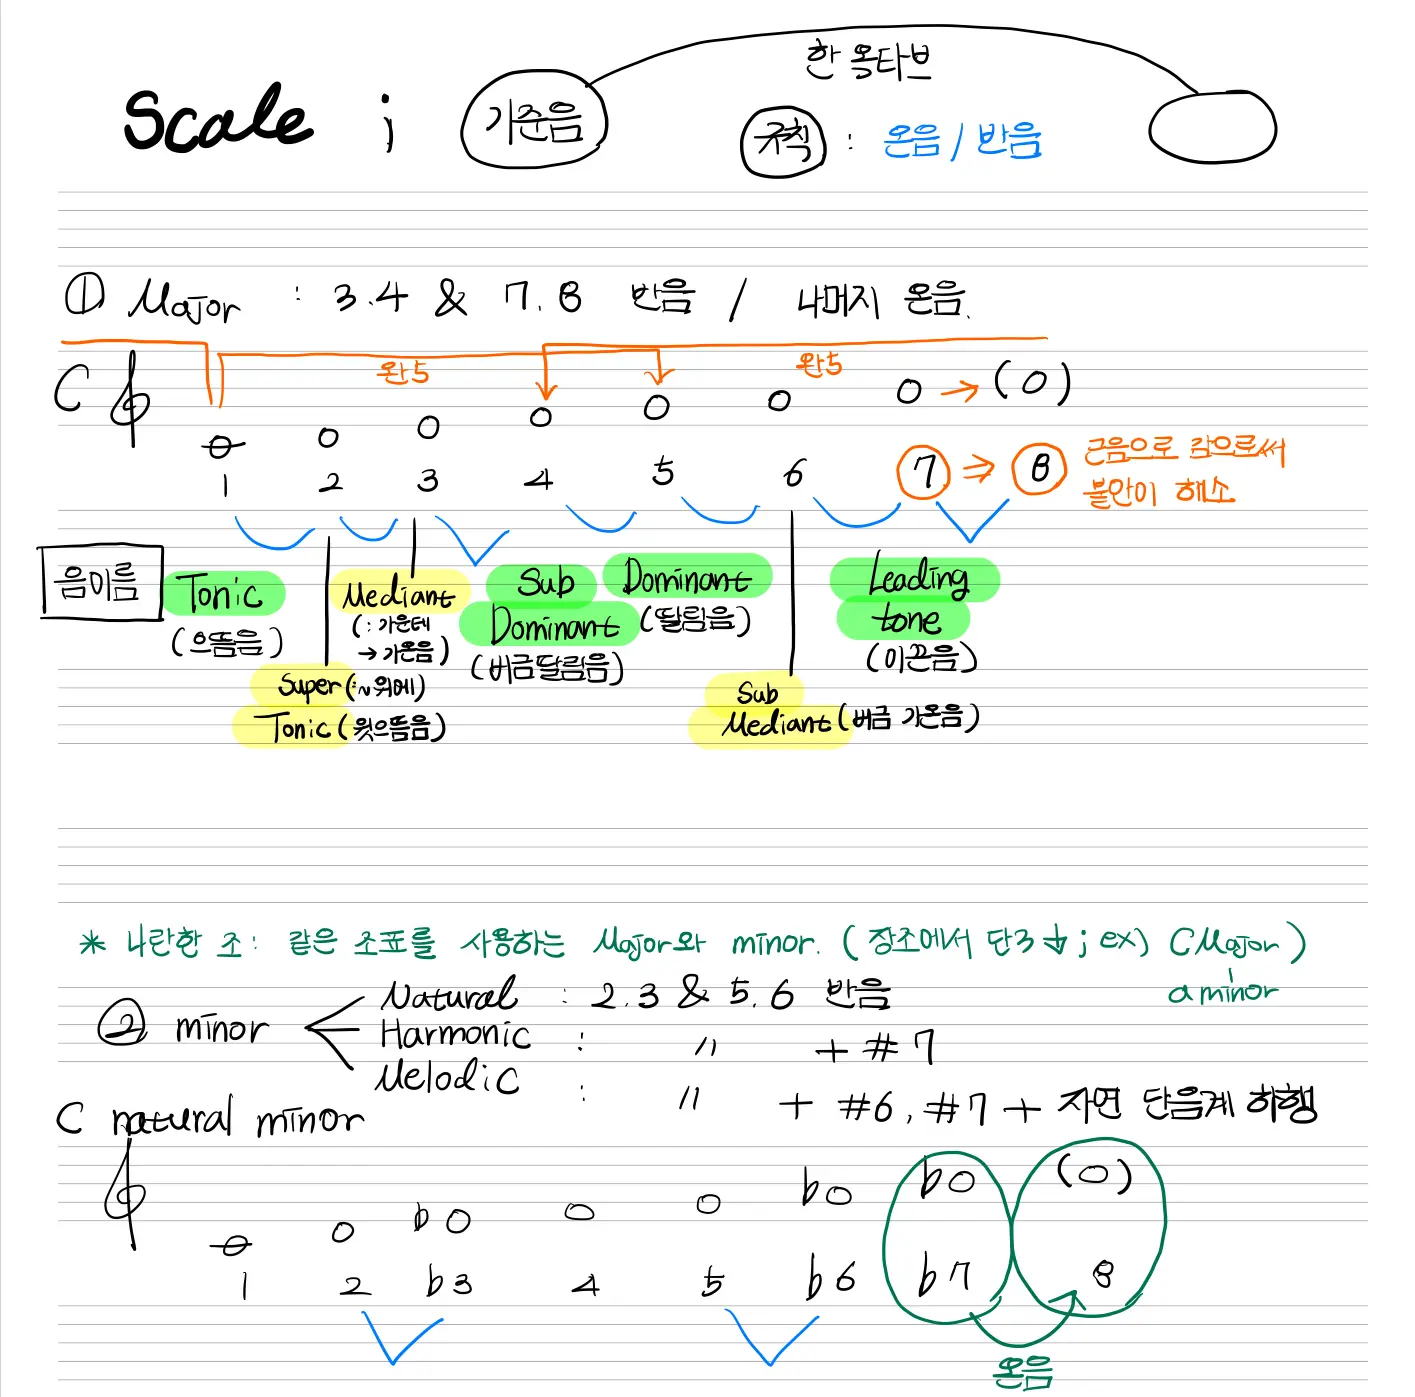 한 옥타브
Scale ; 기준음 규칙 : 온음 / 반음
① Major : 3.4 & 7.8 반음 / 나머지 온음.
완5 완5
C (o)
1 2 3 4 5 6 7 → 8 근음으로 감으로써
불안이 해소
음이름 Tonic Mediant Sub Dominant Leading
(으뜸음) (: 가운데 Dominant (딸림음) tone
→ 가온음) (버금딸림음) (이끈음)
Super (:~위에) Sub
Tonic (윗으뜸음) Mediant (버금 가온음)
* 나란한 조 : 같은 조표를 사용하는 Major와 minor. (장조에서 단3↓ ; ex) C Major)
a minor
② minor Natural : 2.3 & 5.6 반음
Harmonic : 〃 + #7
Melodic : 〃 + #6, #7 + 자연 단음계 하행
C natural minor
b b b (o)
1 2 b3 4 5 b6 b7 8
온음